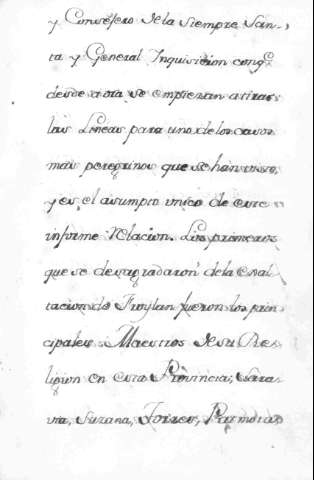 y Consejero de la Siempre San-
ta y General Inquisicion con q.e
desde aora se empiezan a tirar
las Lineas para uno de los casos
mas peregrinos que se han visto,
y es el asumpto unico de este
informe Relacion. Los primeros
que se desagradaron de la exal
tacion de Froylan fueron los prin
cipales Maestros de su Re-
ligion en esta Provincia;
na, Suzana, Torres,